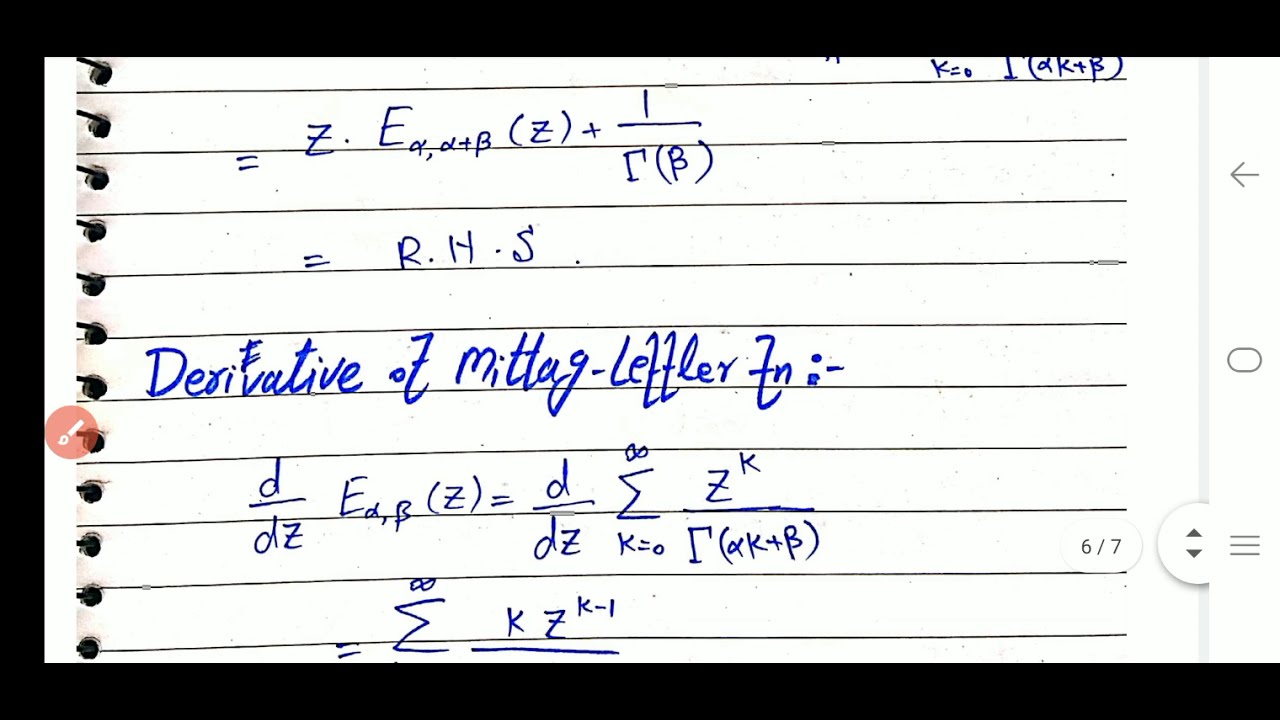 K=0 Γ(αK+β)
= Z. E_{α,α+β}(Z) + 1/Γ(β)
= R.H.S.
Derivative of Mittag-Leffler fn :-
d/dz E_{α,β}(Z) = d/dz ∑_{K=0}^{∞} Z^K/Γ(αK+β)
= ∑^{∞} K Z^{K-1}
6 / 7